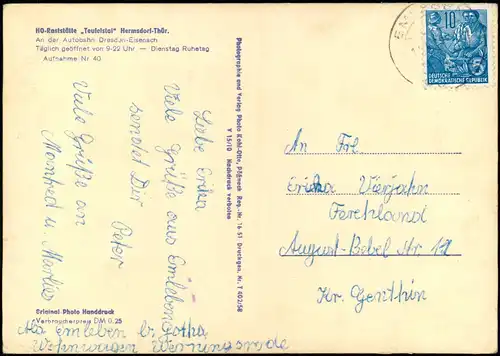 HO-Raststätte „Teufelstal" Hermsdorf-Thür.
An der Autobahn Dresden-Eisenach
Täglich geöffnet von 9-22 Uhr — Dienstag Ruhetag
Aufnahme Nr. 40
Liebe Erika
Viele Grüße aus Emleben
sendet Dir Peter
Viele Grüße an
Manfred u Marlies
Original-Photo Handdruck
Verbraucherpreis DM 0,25
Emleben b. Gotha
Photographie und Verlag Photo Kahl-Ott, Pößneck Reg.-Nr. 16 51 Druckgen. Nr. T 402/58
V 15/10 Nachdruck verboten
10
DEUTSCHE
DEMOKRATISCHE REPUBLIK
An Frl.
Erika Vierjahn
Ferchland
August-Bebel Str.
Kr. Genthin